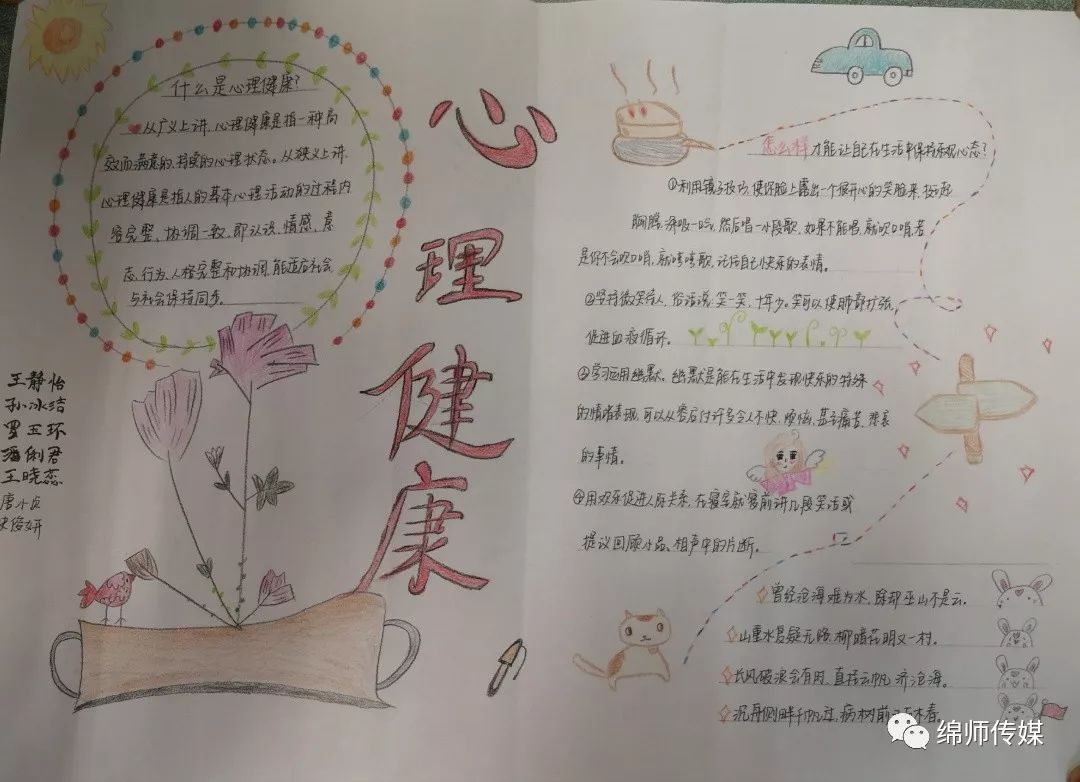 什么是心理健康?
从广义上讲,心理健康是指一种高
效而满意的、持续的心理状态。从狭义上讲,
心理健康是指人的基本心理活动的过程内
容完整、协调一致,即认识、情感、意
志、行为、人格完整和协调,能适应社会,
与社会保持同步。
心理健康
王静怡
孙冰洁
罗玉环
俐君
王晓蕊
唐小
俊妍
怎么样才能让自己在生活中保持乐观心态?
①利用镜子技巧,使你脸上露出一个很开心的笑脸来,挺起
胸膛,深吸一口气,然后唱一小段歌,如果不能唱,就吹口哨,若
是你不会吹口哨,就哼哼歌,记住自己快乐的表情。
②坚持微笑待人,俗话说,笑一笑,十年少。笑可以使肺部扩张,
促进血液循环。
③学习运用幽默。幽默是能在生活中发现快乐的特殊
的情绪表现,可以从容应付许多令人不快、烦恼,甚至痛苦、悲哀
的事情。
④用欢乐促进人际关系,在寝室就寝前讲几段笑话或
提议回顾小品、相声中的片断。
曾经沧海难为水,除却巫山不是云。
山重水复疑无路,柳暗花明又一村。
长风破浪会有时,直挂云帆济沧海。
沉舟侧畔千帆过,病树前 木春。
绵师传媒